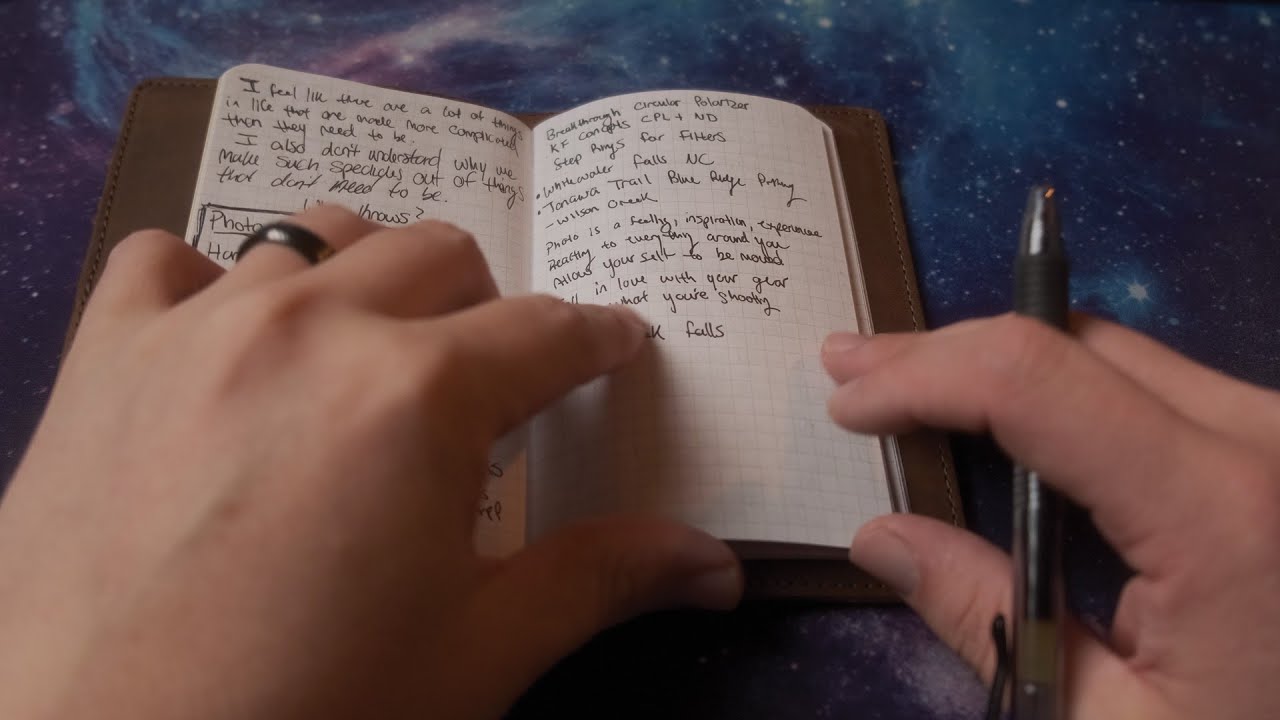 I feel like there are a lot of things
in life that are made more complicated
than they need to be.
I also don't understand why we
make such spectacles out of things
that don't need to be.
throws?
Photo
Har
Breakthrough Circular Polarizer
KF Concepts CPL + ND
Step Rings for Filters
• Whitewater Falls NC
• Tanawa Trail Blue Ridge
- Wilson Creek
Photo is a feeling, inspiration, experience
Reacting to everything around you
Allow your self to be moved
in love with your gear
what you're shooting
falls